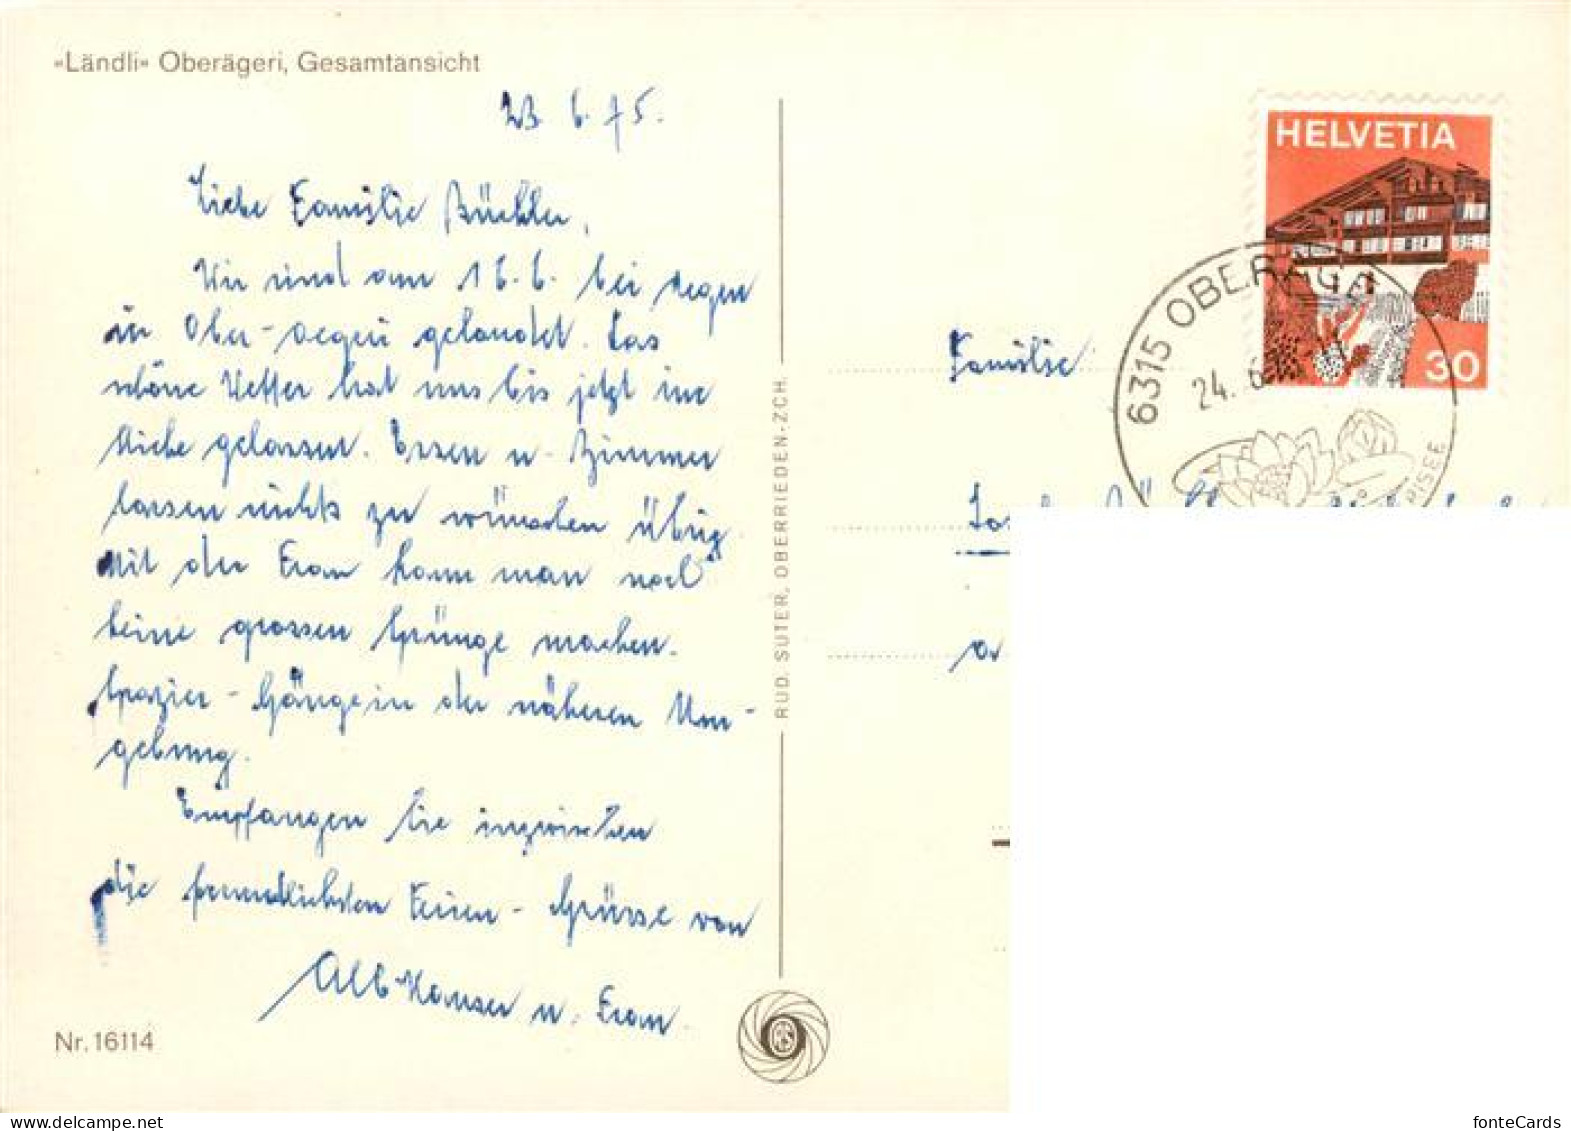 «Ländli» Oberägeri, Gesamtansicht
23. 6. 75.
Liebe Familie Büchler,
Wir sind am 16. 6. bei Regen
in Ober-Aegeri gelandet. Das
schöne Wetter hat uns bis jetzt im
Stiche gelassen. Essen u. Zimmer
lassen nichts zu wünschen übrig.
Mit der Frau kann man noch
keine grossen Sprünge machen.
Spazier-Gänge in der näheren Um-
gebung.
Empfangen Sie inzwischen
die freundlichsten Ferien-Grüsse von
Alb. Hauser u. Frau.
Nr. 16114
RUD. SUTER, OBERRIEDEN-ZCH.
HELVETIA
30
6315 OBERÄGERI
24. 6
Familie